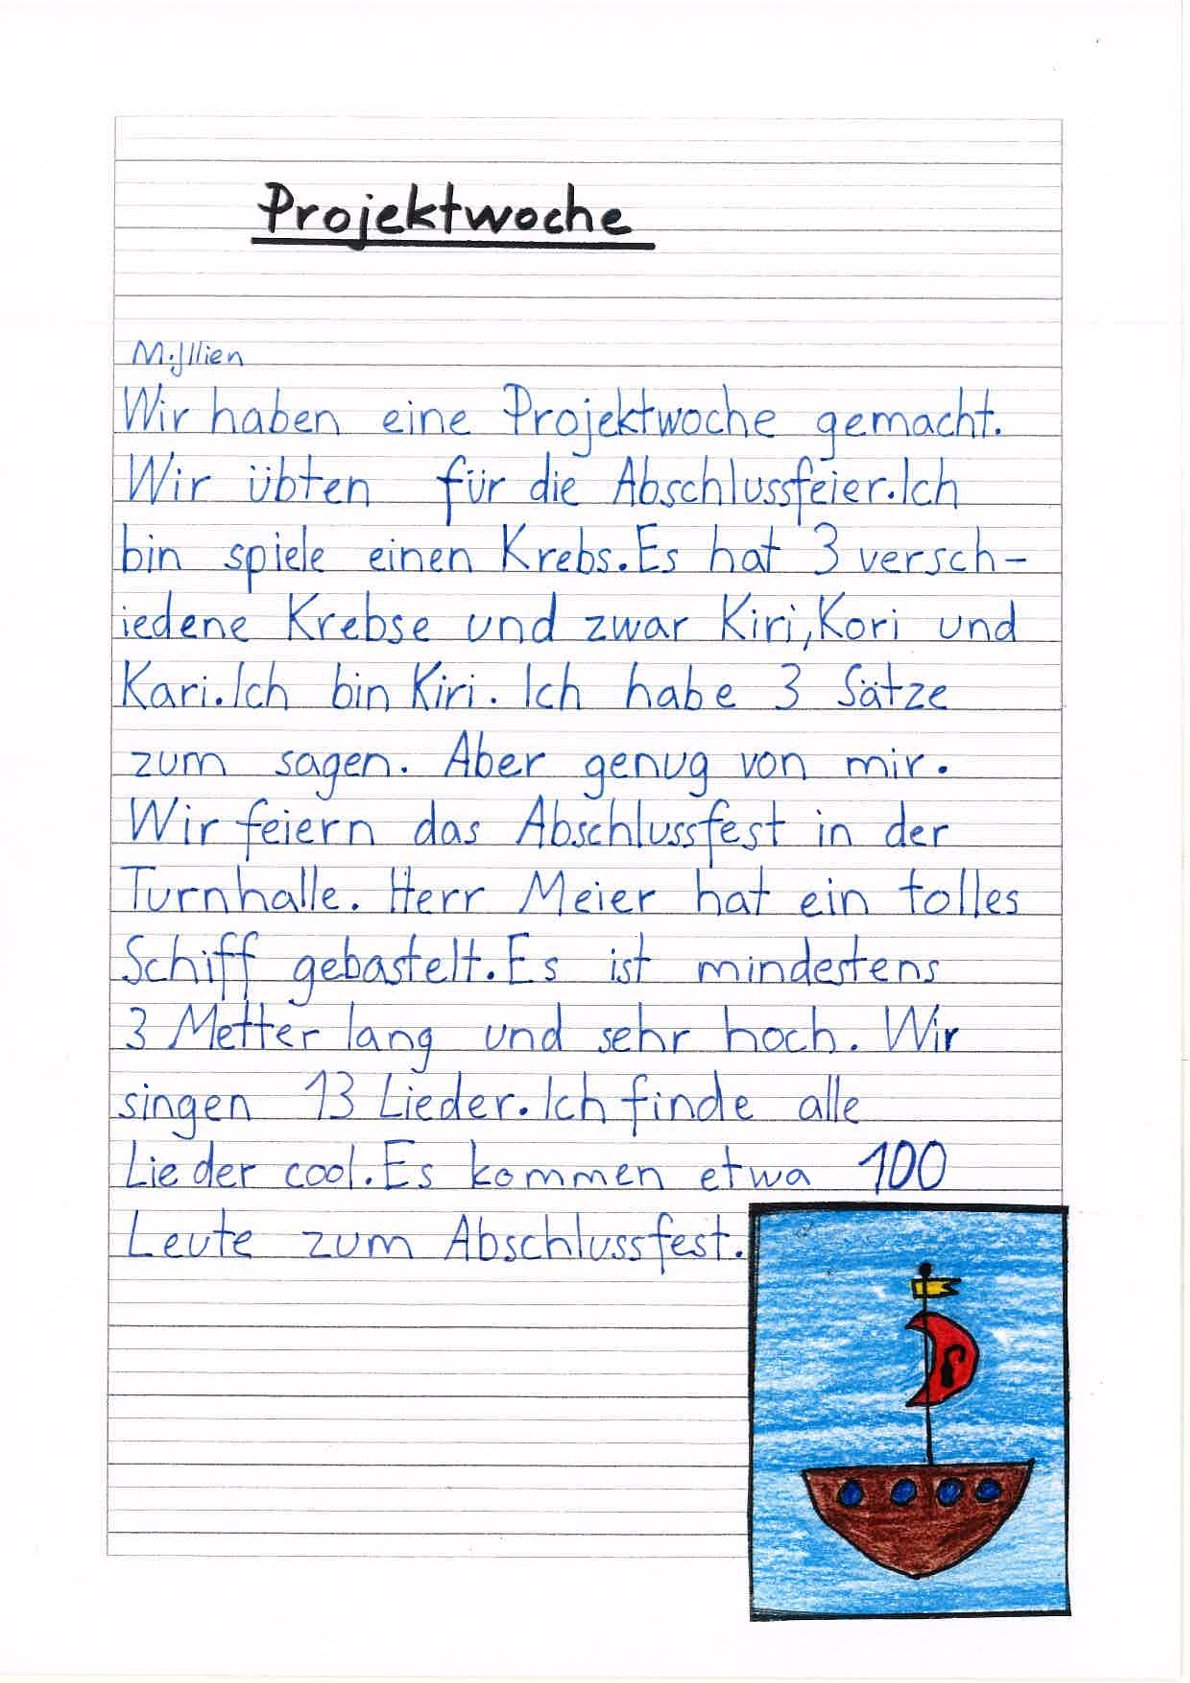 Projektwoche
M. Jllien
Wir haben eine Projektwoche gemacht.
Wir übten für die Abschlussfeier. Ich
bin spiele einen Krebs. Es hat 3 versch-
iedene Krebse und zwar Kiri, Kori und
Kari. Ich bin Kiri. Ich habe 3 Sätze
zum sagen. Aber genug von mir.
Wir feiern das Abschlussfest in der
Turnhalle. Herr Meier hat ein tolles
Schiff gebastelt. Es ist mindestens
3 Metter lang und sehr hoch. Wir
singen 13 Lieder. Ich finde alle
Lieder cool. Es kommen etwa 100
Leute zum Abschlussfest.